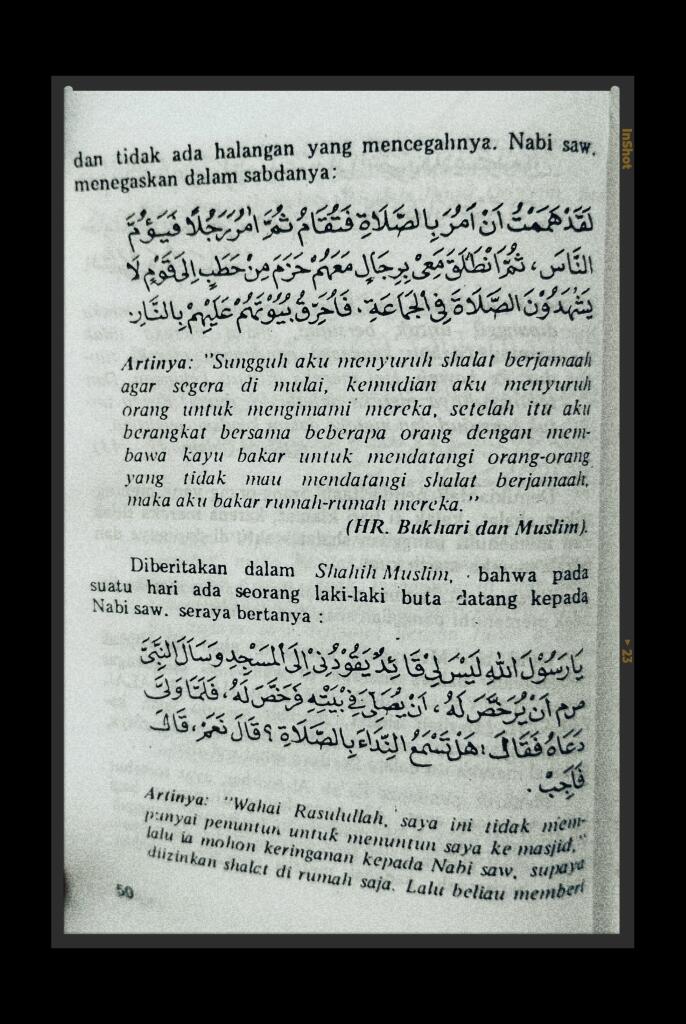 dan tidak ada halangan yang mencegahnya. Nabi saw.
menegaskan dalam sabdanya:
لَقَدْ هَمَمْتُ اَنْ اٰمُرَ بِالصَّلَاةِ فَتُقَامُ ثُمَّ اٰمُرَ رَجُلًا فَيَؤُمَّ
النَّاسَ، ثُمَّ انْطَلَقَ مَعِىْ بِرِجَالٍ مَعَهُمْ حَزَمٌ مِنْ حَطَبٍ اِلَى قَوْمٍ لَا
يَشْهَدُوْنَ الصَّلَاةَ فِى الْجَمَاعَةِ. فَاُحَرِّقُ بُيُوْتَهُمْ عَلَيْهِمْ بِالنَّارِ.
Artinya: "Sungguh aku menyuruh shalat berjamaah
agar segera di mulai, kemudian aku menyuruh
orang untuk mengimami mereka, setelah itu aku
berangkat bersama beberapa orang dengan mem-
bawa kayu bakar untuk mendatangi orang-orang
yang tidak mau mendatangi shalat berjamaah,
maka aku bakar rumah-rumah mereka."
(HR. Bukhari dan Muslim).
Diberitakan dalam Shahih Muslim, bahwa pada
suatu hari ada seorang laki-laki buta datang kepada
Nabi saw. seraya bertanya :
يَارَسُوْلَ اللهِ لَيْسَ لِىْ قَائِدٌ يَقُوْدُنِىْ اِلَى الْمَسْجِدِ وَسَاَلَ النَّبِىَّ
صم اَنْ يُرَخِّصَ لَهُ، اَنْ يُصَلِّىَ فِىْ بَيْتِهِ فَرَخَّصَ لَهُ، فَلَمَّا وَلَّى
دَعَاهُ فَقَالَ : هَلْ تَسْمَعُ النِّدَاءَ بِالصَّلَاةِ ؟ قَالَ نَعَمْ، قَالَ
فَاَجِبْ.
Artinya: "Wahai Rasulullah, saya ini tidak mem-
punyai penuntun untuk menuntun saya ke masjid,"
lalu ia mohon keringanan kepada Nabi saw, supaya
diizinkan shalat di rumah saja. Lalu beliau memberi
50
InShot
23